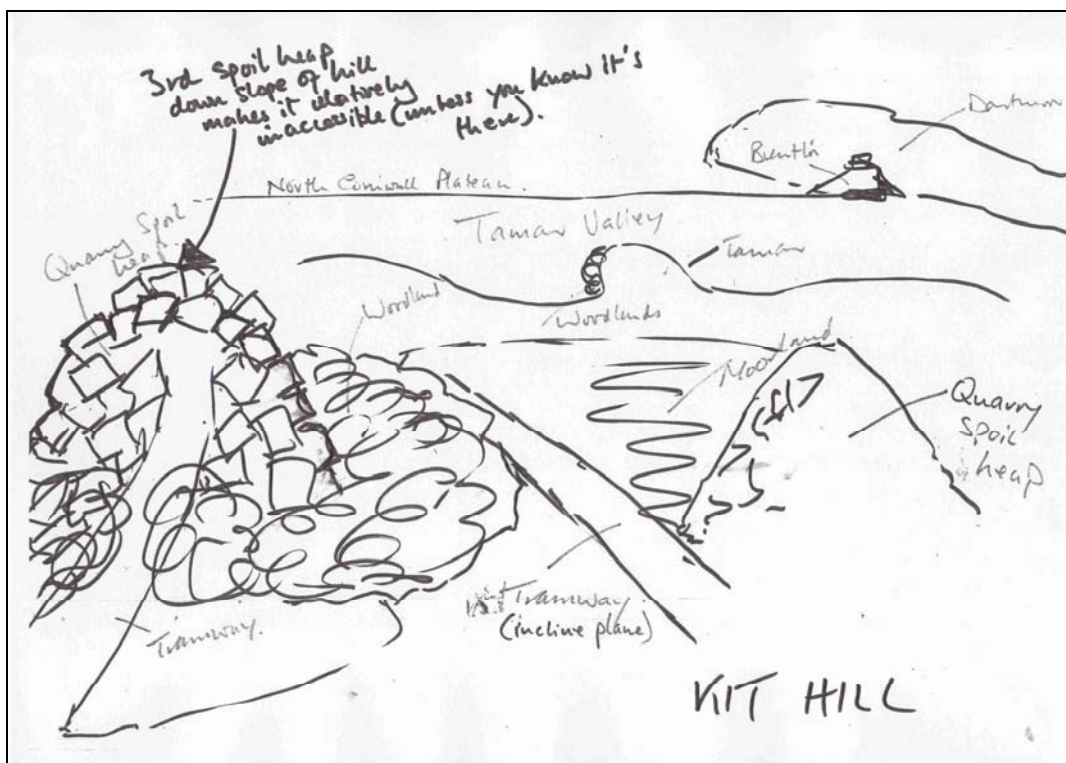 3rd spoil heap
down slope of hill
makes it relatively
inaccessible (unless you know it's
there).
Dartmoor
North Cornwall Plateau.
Tamar Valley
Quarry Spoil
heap
Woodland
Woodlands
Tamar
Moorland
Quarry
spoil
heap
Tramway
(incline plane)
Tramway.
KIT HILL